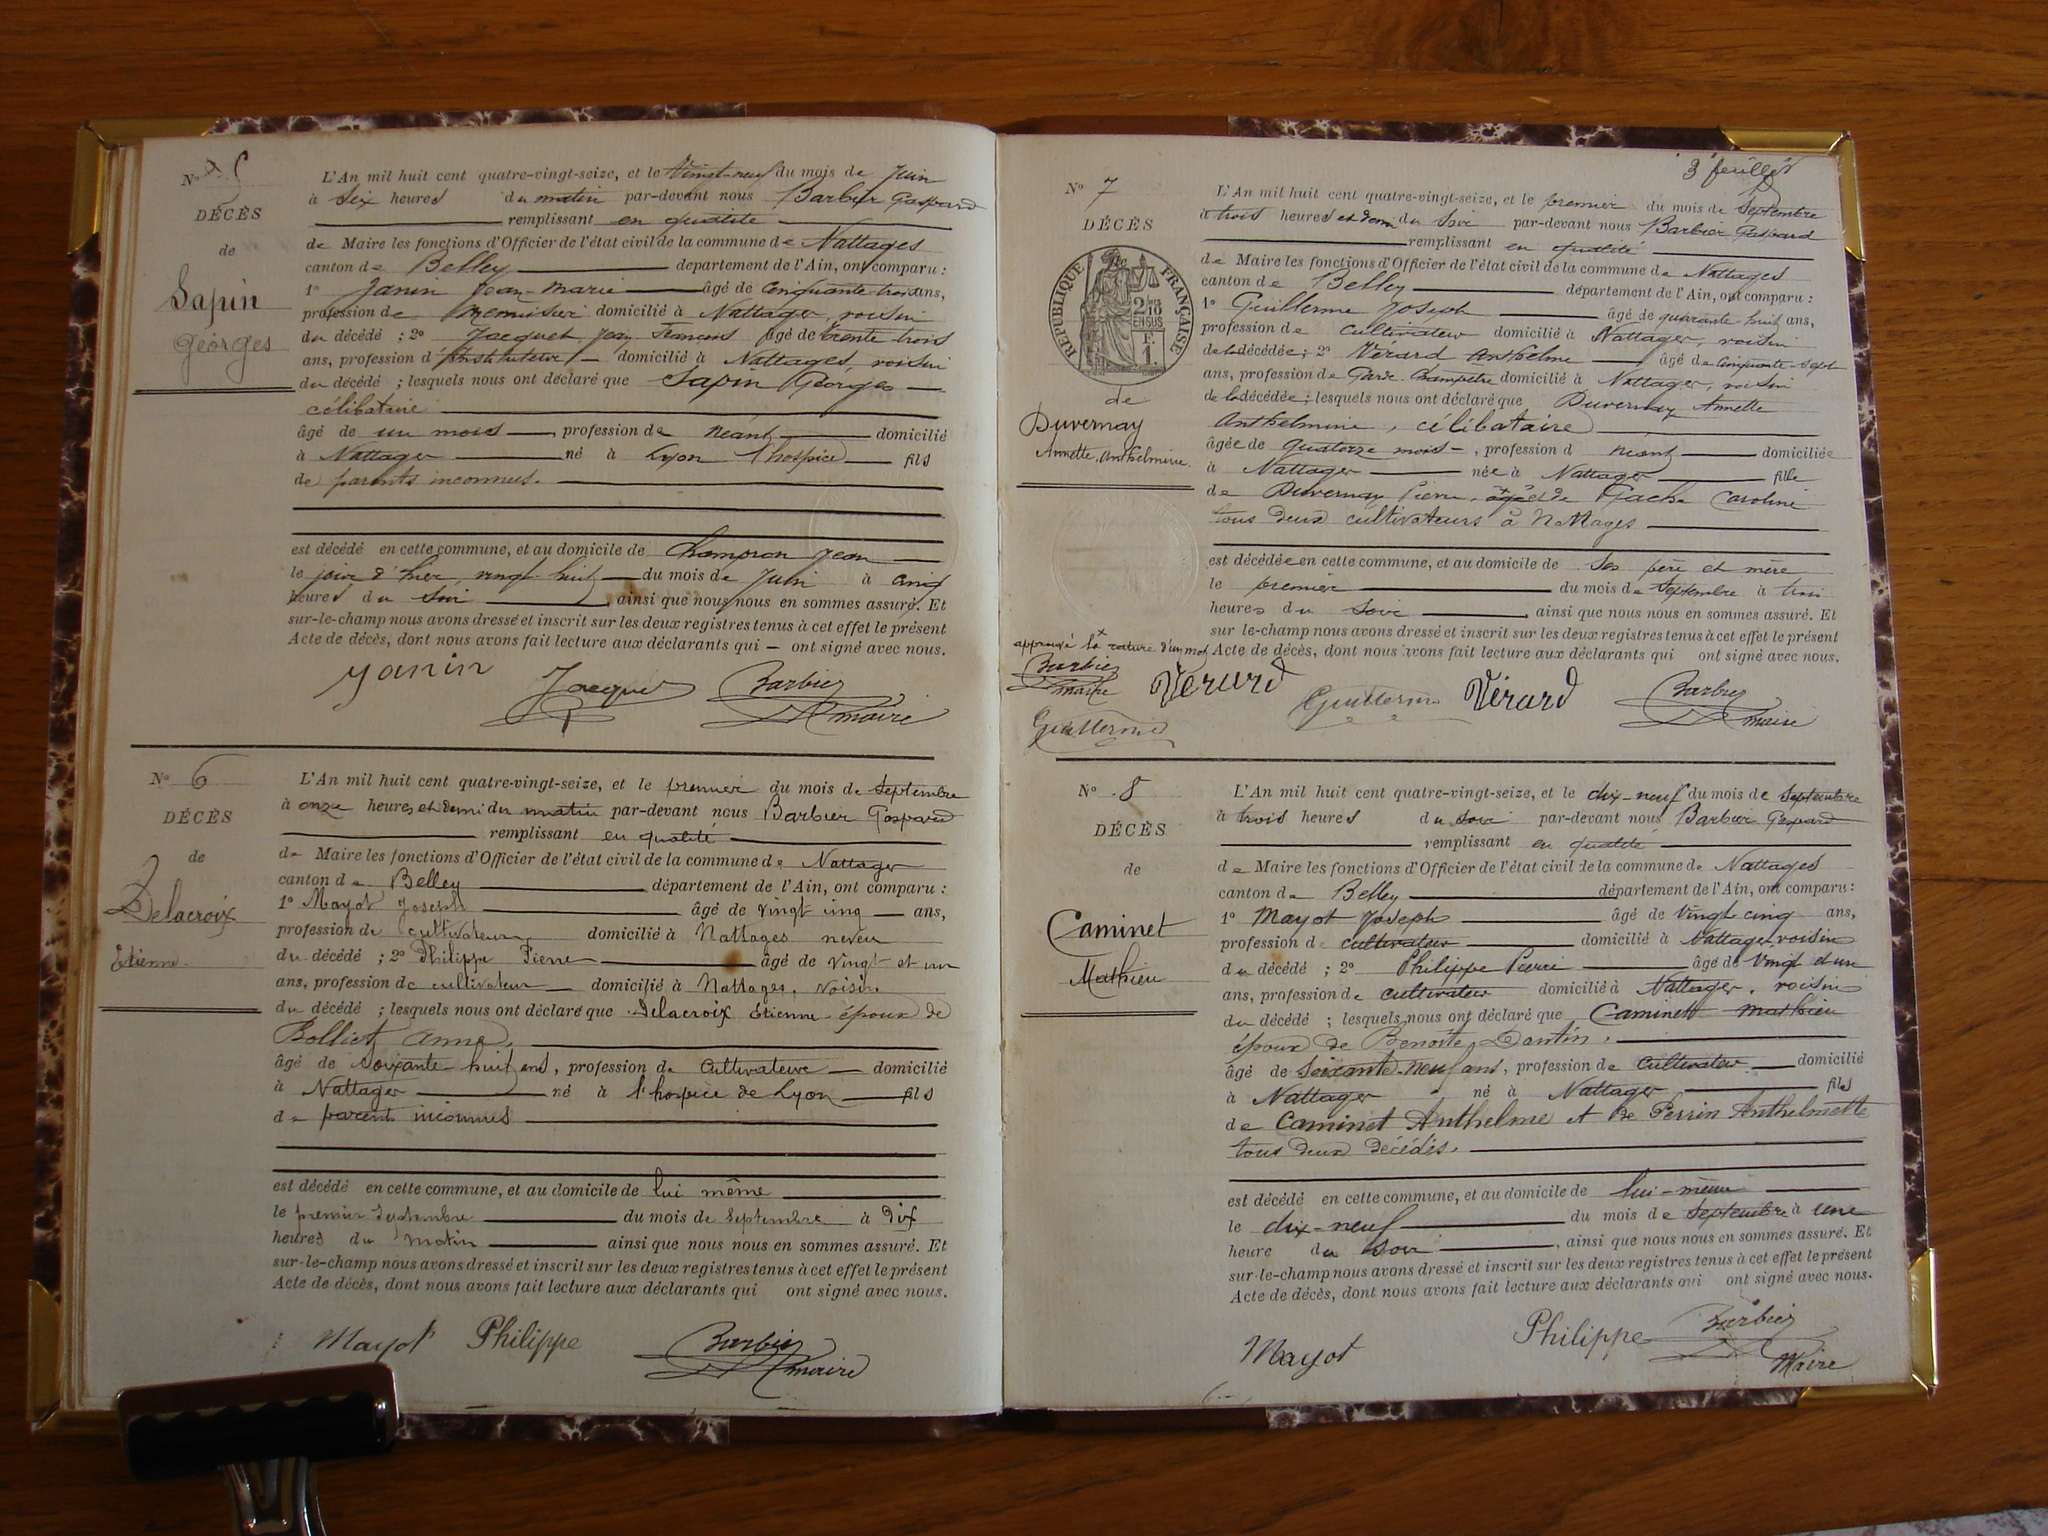 N° 5
DÉCÈS
de
Sapin
Georges
L'An mil huit cent quatre-vingt-seize, et le Vingt-neuf du mois de Juin
à Six heures du matin par-devant nous Barbier Gaspard
remplissant en qualité
de Maire les fonctions d'Officier de l'état civil de la commune de Nattages
canton de Belley département de l'Ain, ont comparu :
1° Janin Jean-Marie âgé de Cinquante trois ans,
profession de domicilié à Nattages, voisin
du décédé ; 2° Jacquet Jean François âgé de trente trois
ans, profession d'Instituteur domicilié à Nattages, voisin
du décédé ; lesquels nous ont déclaré que Sapin Georges
célibataire
âgé de un mois , profession de néant domicilié
à Nattages né à Lyon l'hospice fils
de parents inconnus.
est décédé en cette commune, et au domicile de Champron Jean
le jour d'hier, vingt-huit du mois de Juin à cinq
heures du soir , ainsi que nous nous en sommes assuré. Et
sur-le-champ nous avons dressé et inscrit sur les deux registres tenus à cet effet le présent
Acte de décès, dont nous avons fait lecture aux déclarants qui — ont signé avec nous.
Janin Jacquet Barbier
maire
N° 6
DÉCÈS
de
Delacroix
Etienne
L'An mil huit cent quatre-vingt-seize, et le premier du mois de Septembre
à onze heures et demi du matin par-devant nous Barbier Gaspard
remplissant en qualité
de Maire les fonctions d'Officier de l'état civil de la commune de Nattages
canton de Belley département de l'Ain, ont comparu :
1° Mayot Joseph âgé de vingt cinq ans,
profession de cultivateur domicilié à Nattages neveu
du décédé ; 2° Philippe Pierre âgé de vingt et un
ans, profession de cultivateur domicilié à Nattages, voisin
du décédé ; lesquels nous ont déclaré que Delacroix Etienne époux de
Bolliet Anne,
âgé de soixante huit ans, profession de Cultivateur domicilié
à Nattages né à l'hospice de Lyon fils
de parents inconnus
est décédé en cette commune, et au domicile de lui même
le premier Septembre du mois de Septembre à dix
heures du matin ainsi que nous nous en sommes assuré. Et
sur-le-champ nous avons dressé et inscrit sur les deux registres tenus à cet effet le présent
Acte de décès, dont nous avons fait lecture aux déclarants qui ont signé avec nous.
Mayot Philippe Barbier
maire
3e feuillet
N° 7
DÉCÈS
RÉPUBLIQUE FRANÇAISE
2/10 EN SUS
F. 1.
de
Duvernay
Annette Anthelmine.
L'An mil huit cent quatre-vingt-seize, et le premier du mois de Septembre
à trois heures et demi du Soir par-devant nous Barbier Gaspard
remplissant en qualité
de Maire les fonctions d'Officier de l'état civil de la commune de Nattages
canton de Belley département de l'Ain, ont comparu :
1° Guillerme Joseph âgé de quarante huit ans,
profession de cultivateur domicilié à Nattages, voisin
de la décédée ; 2° Vérard Anthelme âgé de cinquante sept
ans, profession de Garde Champêtre domicilié à Nattages, voisin
de la décédée ; lesquels nous ont déclaré que Duvernay Annette
Anthelmine, célibataire
âgée de quatorze mois , profession d néant domiciliée
à Nattages née à Nattages fille
de Duvernay Pierre et de Gache Caroline
tous deux cultivateurs à Nattages
est décédée en cette commune, et au domicile de Ses père et mère
le premier du mois de Septembre à trois
heures du soir ainsi que nous nous en sommes assuré. Et
sur-le-champ nous avons dressé et inscrit sur les deux registres tenus à cet effet le présent
Acte de décès, dont nous avons fait lecture aux déclarants qui ont signé avec nous.
approuvé la rature d'un mot
Barbier
maire
Vérard
Guillerme
Guillerme Vérard Barbier
maire
N° 8
DÉCÈS
de
Caminet
Mathieu
L'An mil huit cent quatre-vingt-seize, et le dix-neuf du mois de Septembre
à trois heures du soir par-devant nous Barbier Gaspard
remplissant en qualité
de Maire les fonctions d'Officier de l'état civil de la commune de Nattages
canton de Belley département de l'Ain, ont comparu :
1° Mayot Joseph âgé de Vingt cinq ans,
profession de cultivateur domicilié à Nattages, voisin
du décédé ; 2° Philippe Pierre âgé de Vingt et un
ans, profession de cultivateur domicilié à Nattages, voisin
du décédé ; lesquels nous ont déclaré que Caminet Mathieu
époux de Benoîte Dantin,
âgé de Soixante-neuf ans, profession de Cultivateur domicilié
à Nattages né à Nattages fils
de Caminet Anthelme et de Perrin Anthelmette
tous deux décédés.
est décédé en cette commune, et au domicile de lui-même
le dix-neuf du mois de Septembre à une
heure du soir , ainsi que nous nous en sommes assuré. Et
sur-le-champ nous avons dressé et inscrit sur les deux registres tenus à cet effet le présent
Acte de décès, dont nous avons fait lecture aux déclarants qui ont signé avec nous.
Mayot Philippe Barbier
Maire